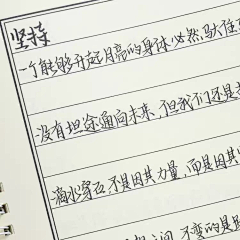 坚持
一个能够升起月亮的身体必然驮住
没有坦途通向未来,但我们还是
滴水穿石不是因其力量,而是因其
之间,不变的是